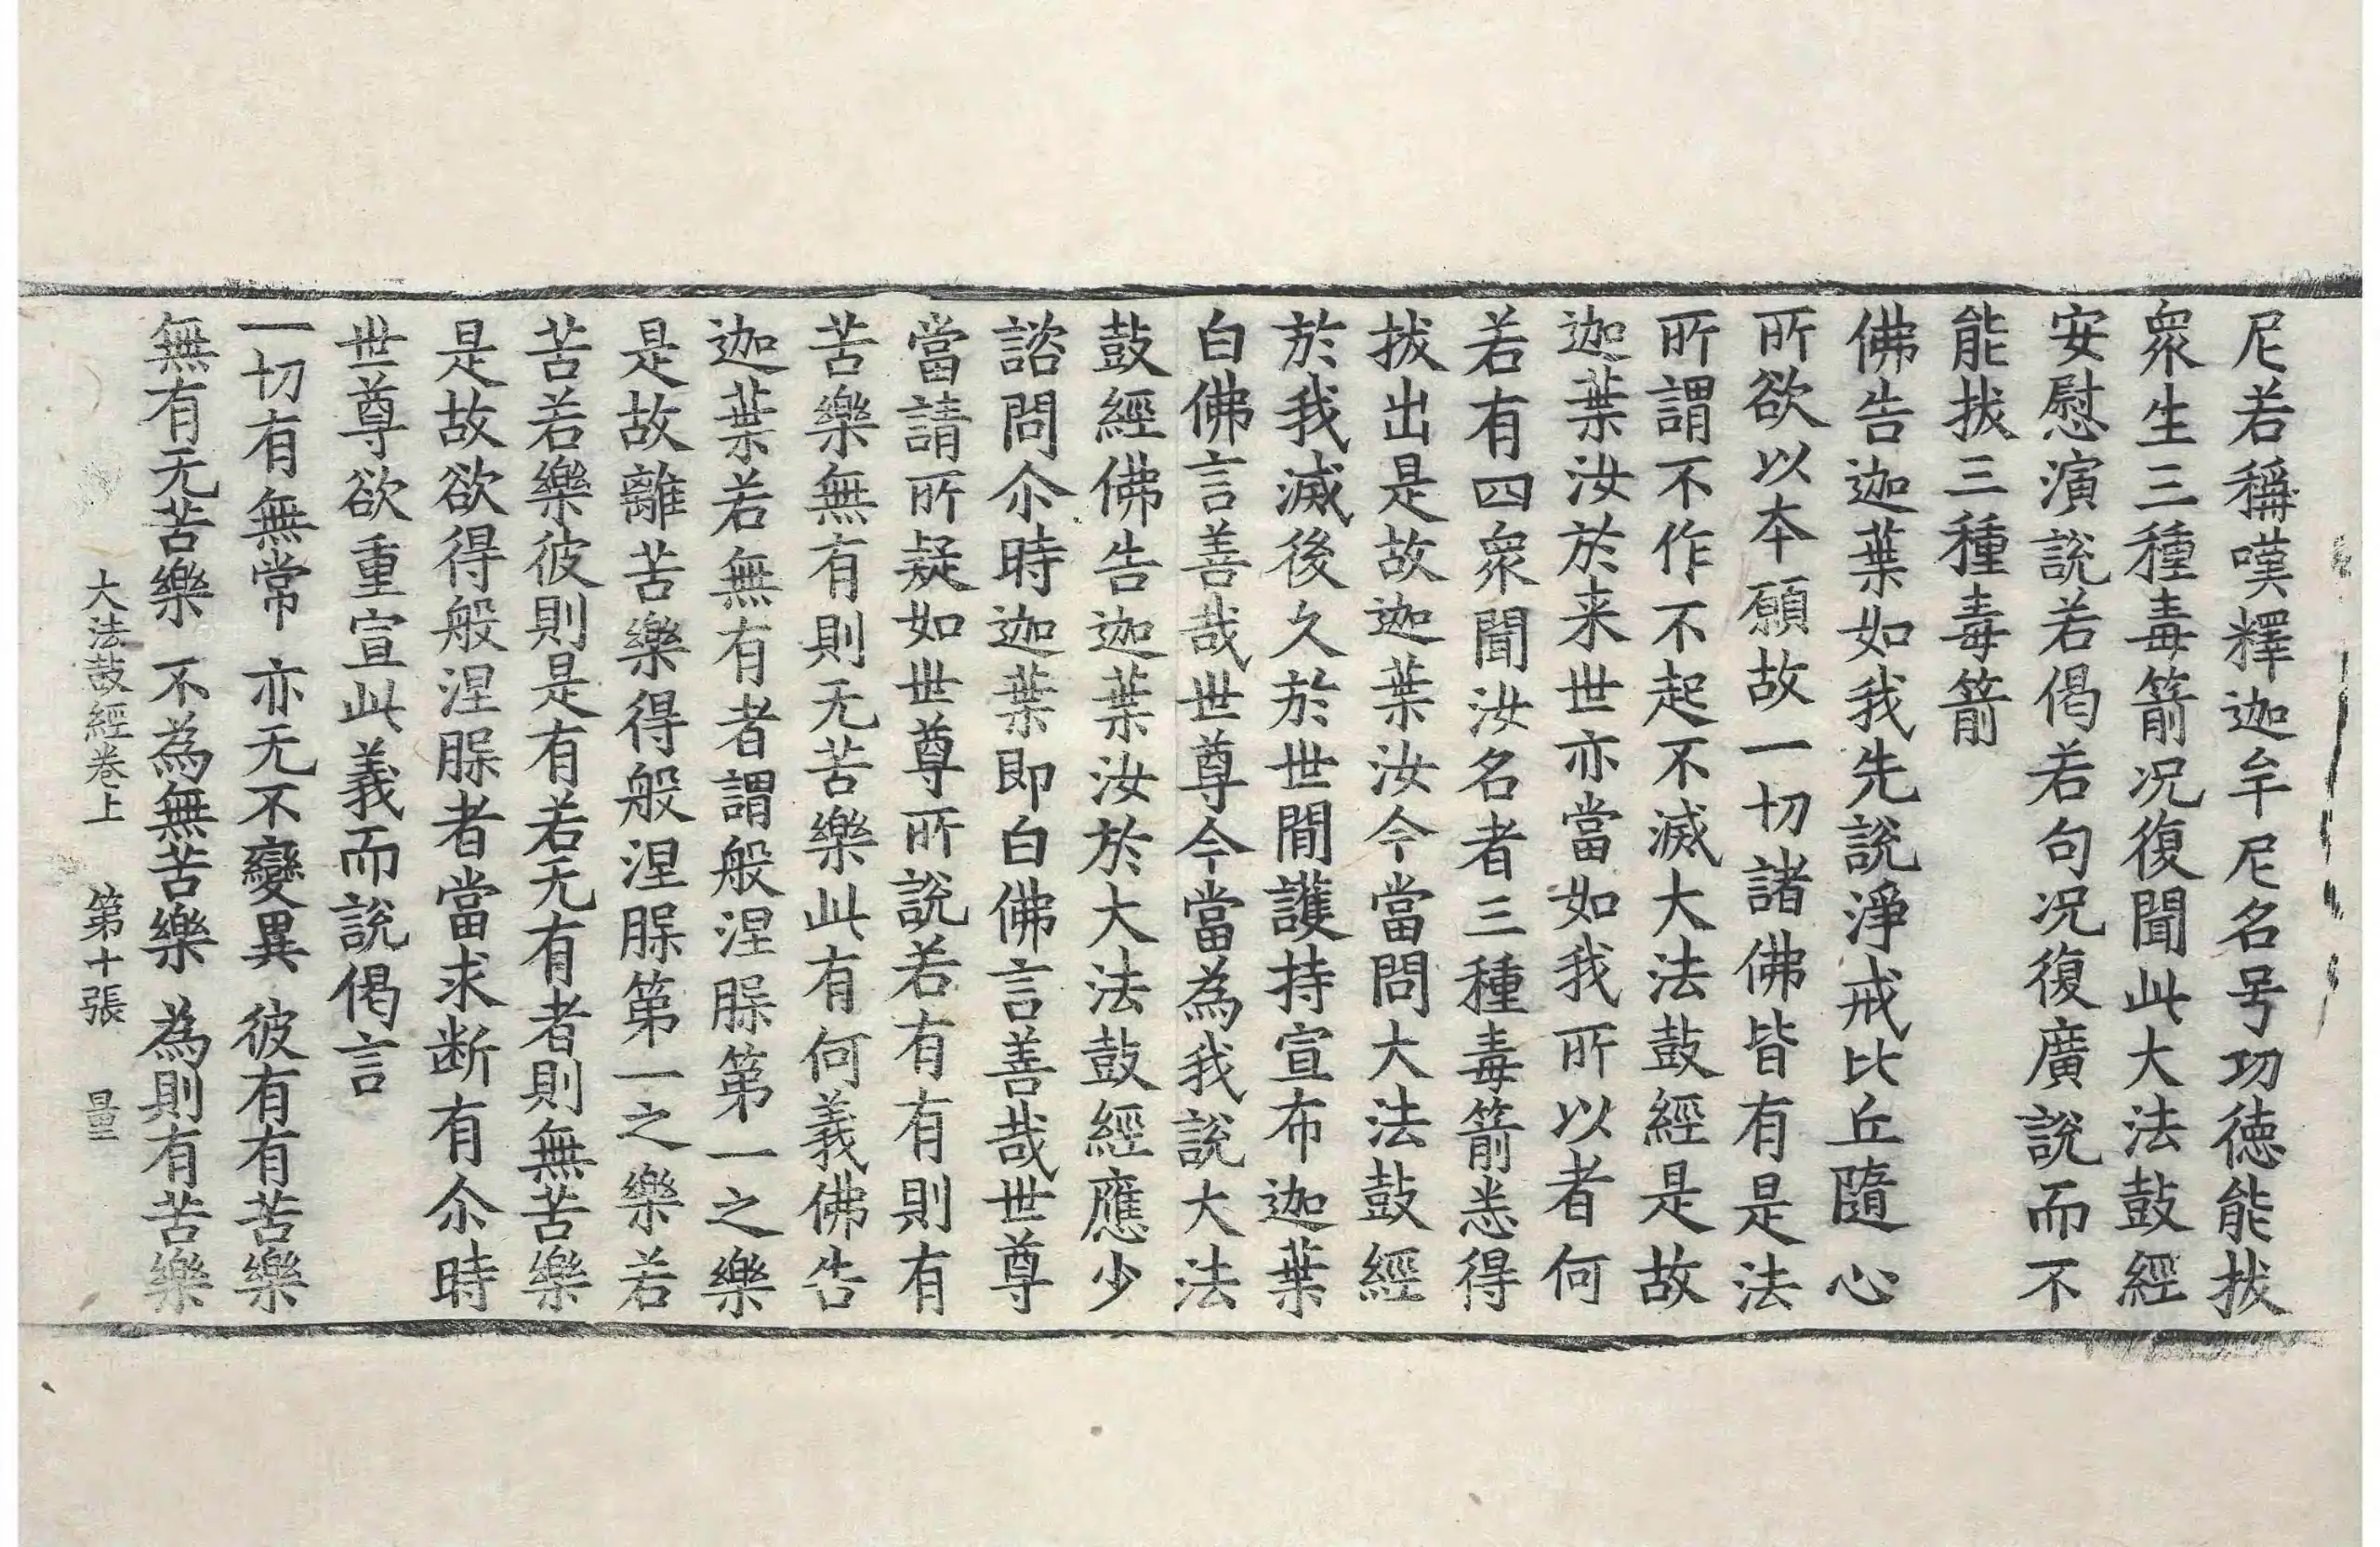 尼若稱嘆釋迦牟尼名号功德能拔
衆生三種毒箭况復聞此大法鼓經
安慰演說若偈若句况復廣說而不
能拔三種毒箭
佛告迦葉如我先說淨戒比丘隨心
所欲以本願故一切諸佛皆有是法
所謂不作不起不滅大法鼓經是故
迦葉汝於来世亦當如我所以者何
若有四衆聞汝名者三種毒箭悉得
拔出是故迦葉汝今當問大法鼓經
於我滅後久於世間護持宣布迦葉
白佛言善哉世尊今當為我說大法
鼓經佛告迦葉汝於大法鼓經應少
諮問尒時迦葉即白佛言善哉世尊
當請所疑如世尊所說若有有則有
苦樂無有則无苦樂此有何義佛告
迦葉若無有者謂般涅槃第一之樂
是故離苦樂得般涅槃第一之樂若
苦若樂彼則是有若无有者則無苦樂
是故欲得般涅槃者當求断有尒時
世尊欲重宣此義而說偈言
一切有無常 亦无不變異 彼有有苦樂
無有无苦樂 不為無苦樂 為則有苦樂
大法鼓經卷上 第十張 量